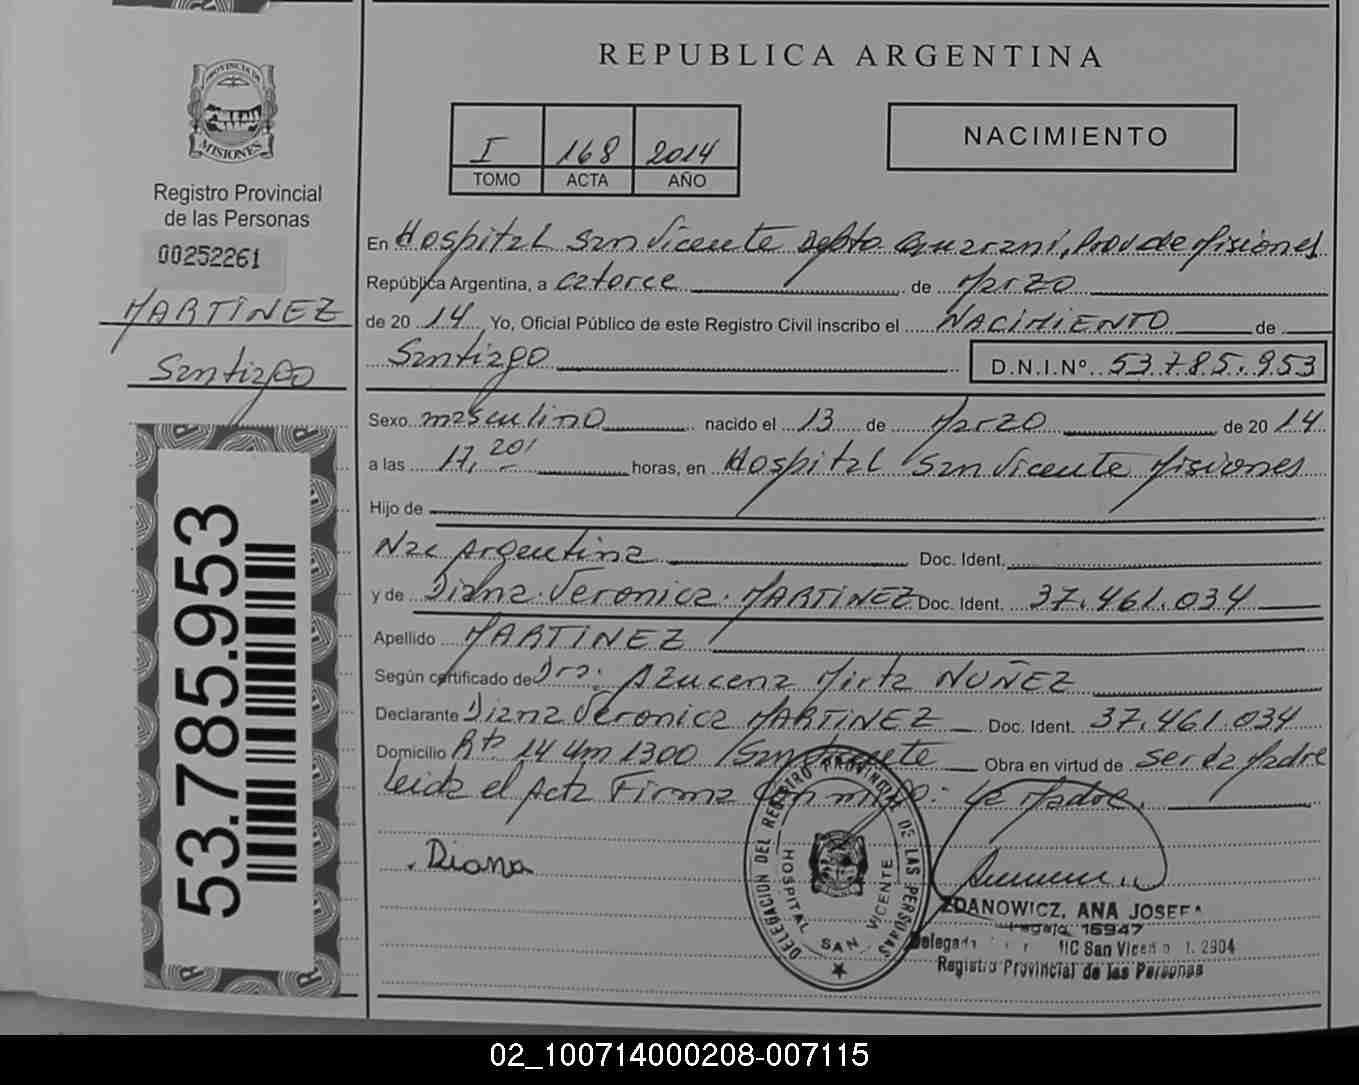 REPUBLICA ARGENTINA
PROVINCIA DE
MISIONES
Registro Provincial
de las Personas
00252261
MARTINEZ
Santiago
53.785.953
I 168 2014
TOMO ACTA AÑO
NACIMIENTO
En Hospital San Vicente Depto Guaraní, Prov de Misiones
República Argentina, a catorce de Marzo
de 20 14 Yo, Oficial Público de este Registro Civil inscribo el NACIMIENTO de
Santiago D.N.I.Nº 53.785.953
Sexo masculino nacido el 13 de Marzo de 20 14
a las 17,20' horas, en Hospital San Vicente Misiones
Hijo de
Nac Argentina Doc. Ident.
y de Diana Veronica MARTINEZ Doc. Ident. 37.461.034
Apellido MARTINEZ
Según certificado de Dra: Azucena Mirta NUÑEZ
Declarante Diana Veronica MARTINEZ Doc. Ident. 37.461.034
Domicilio Rta 14 Km 1300 /San Vicente Obra en virtud de ser la Madre
Leida el Acta Firma Con migo: La Madre.
Diana
DELEGACION DEL REGISTRO PROVINCIAL DE LAS PERSONAS
HOSPITAL SAN VICENTE
ZDANOWICZ, ANA JOSEFA
Legajo 15947
San Vicente 2904
Registro Provincial de las Personas
02_100714000208-007115